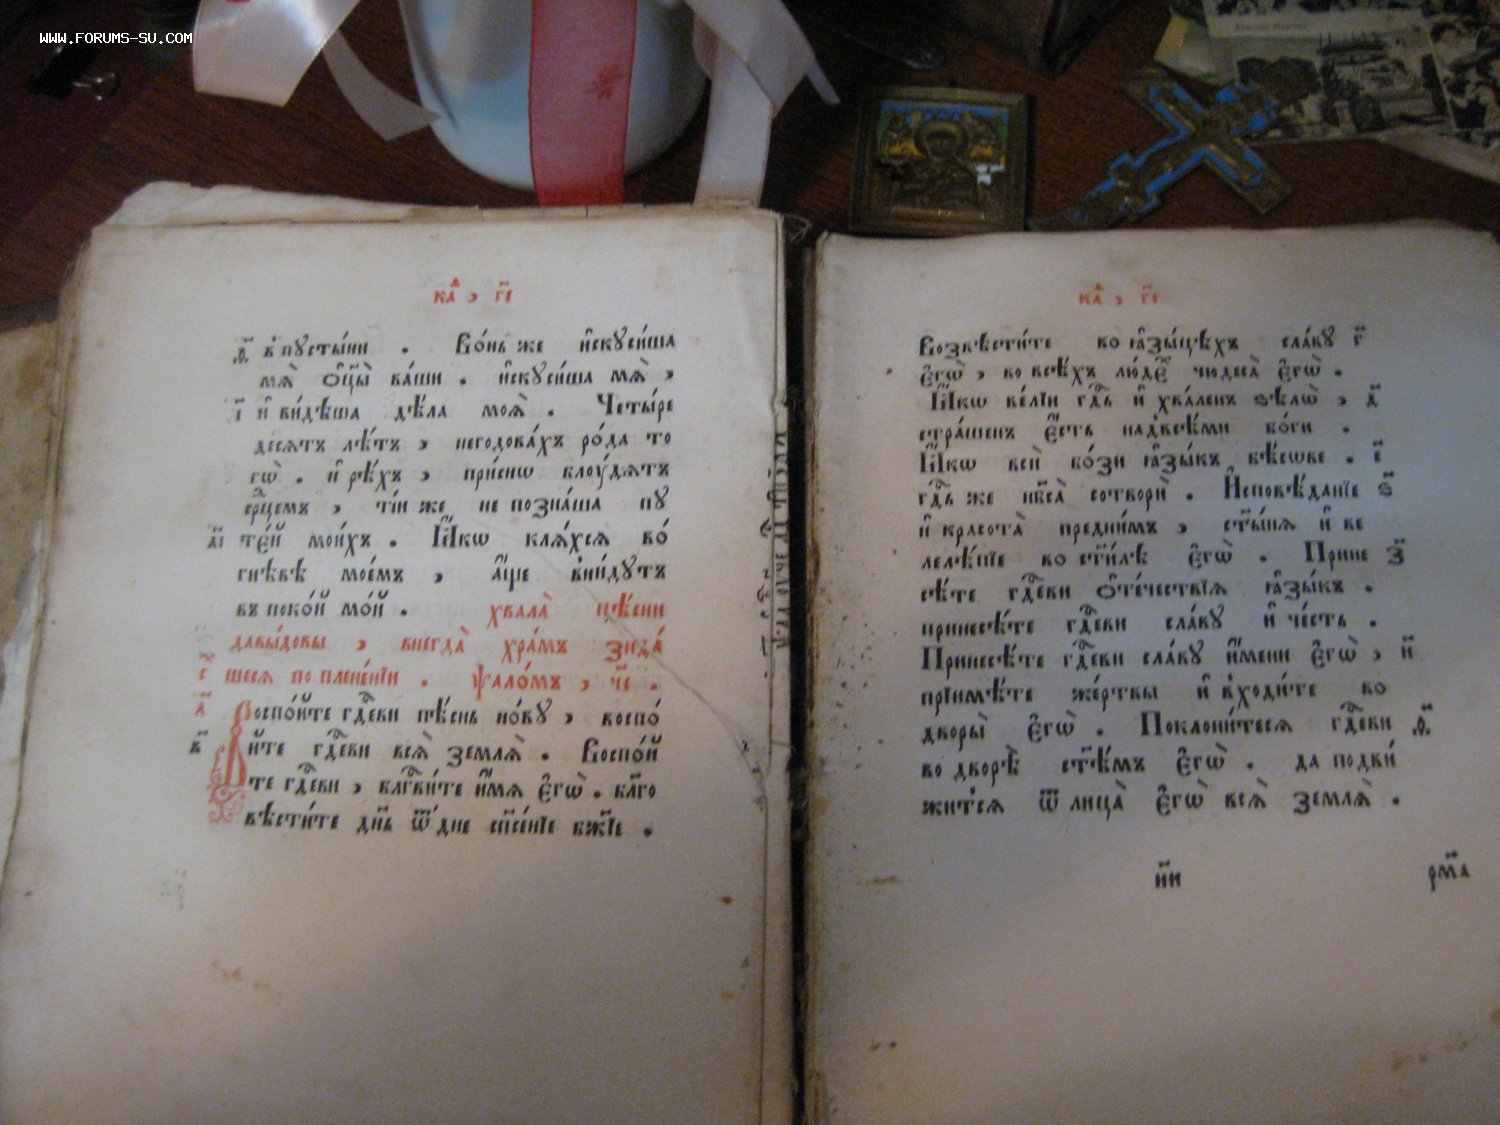 WWW.FORUMS-SU.COM
каⷴ , г҃і
ѳ҃ в пусты́ни . Во́нь же и҆скуси́ша
мѧ̀ ѻ҆ц҃ы̀ ва́ши . и҆скуси́ша мѧ̀ ,
і҃ и҆ ви́дѣша дѣ́ла моѧ̀ . Четы́ре
десѧтъ лѣ́тъ , негодова́хъ ро́да то
гѡ̀ . и҆ рѣ́хъ , при́снѡ блоу́дѧтъ
се́рцемъ , ті́и же не позна́ша пу
а҃і те́й мои́хъ . Ꙗ҆́кѡ клѧ́хсѧ во́
гнѣ́вѣ мое́мъ , а҆́ще вни́дутъ
въ поко́й мо́й . хвала̀ пѣ́сни
давы́довы , внегда̀ хра́мъ зида́
шесѧ по плене́нїи . ѱало́мъ , ч҃е .
а҃ Воспо́йте гдⷭ҇еви пѣ́снь но́ву , воспо́
в҃ йте гдⷭ҇еви всѧ̀ землѧ̀ . Воспо́й
те гдⷭ҇еви , блгⷭ҇ви́те и҆́мѧ є҆гѡ̀ . бл҃го
вѣсти́те дн҃ь ѿ дне сп҃се́нїе бж҃їе .
каⷴ , г҃і
Возвѣсти́те во ꙗ҆зы́цѣхъ сла́ву г҃
є҆гѡ̀ , во всѣ́хъ лю́деⷯ чюдеса̀ є҆гѡ̀ .
Ꙗ҆́кѡ ве́лїи гдⷭ҇ь и҆ хва́ленъ ѕѣлѡ̀ , д҃
стра́шенъ є҆́сть надвсѣ́ми бо́ги .
Ꙗ҆́кѡ всѝ бо́зи ꙗ҆зы́къ бѣ́сове . є҃
гдⷭ҇ь же нб҃са̀ сотворѝ . И҆сповѣ́данїе ѕ҃
и҆ красота̀ предни́мъ , ст҃ы́нѧ и҆ ве
лелѣ́пїе во ст҃и́лѣ є҆гѡ̀ . Прине з҃
сѣ́те гдⷭ҇еви ѻ҆те́чествїѧ ꙗ҆зы́къ .
принесѣ́те гдⷭ҇еви сла́ву и҆ че́сть .
Принесѣ́те гдⷭ҇еви сла́ву и҆́мени є҆гѡ̀ , и҃
прїимѣ́те же́ртвы и҆ вхо́дите во
дворы̀ є҆гѡ̀ . Поклони́тесѧ гдⷭ҇еви ѳ҃
во дворѣ̀ ст҃ѣ́мъ є҆гѡ̀ . да подви́
житсѧ ѿ лица̀ є҆гѡ̀ всѧ̀ землѧ̀ .
рм҃а